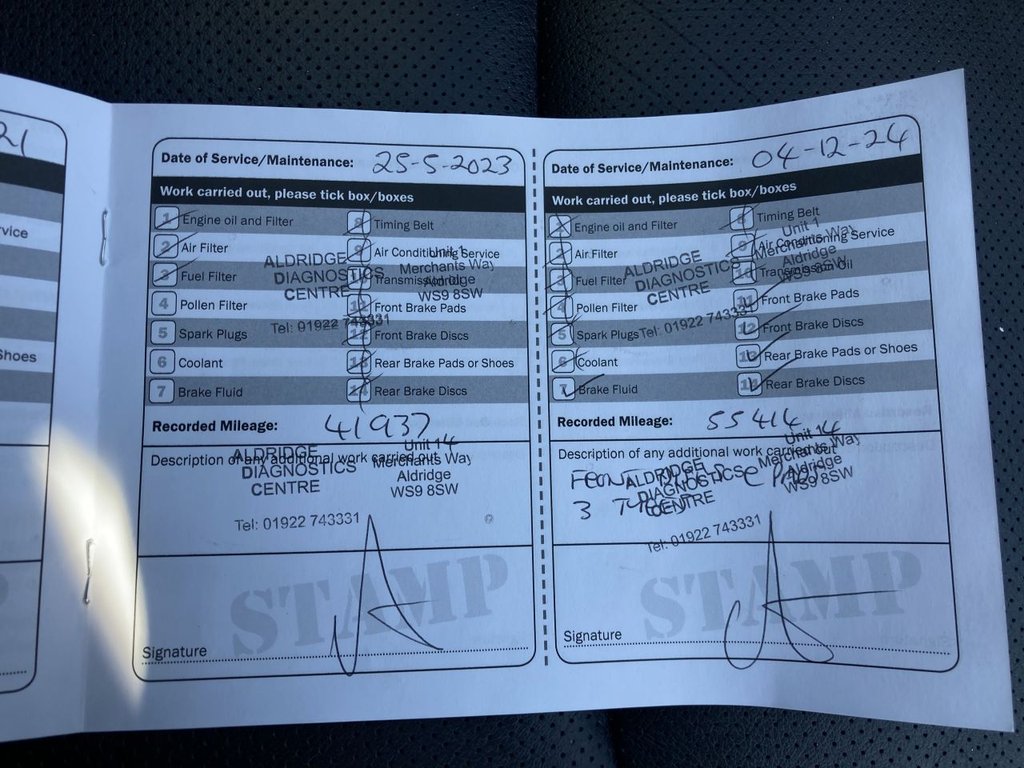 21
vice
Shoes
Date of Service/Maintenance: 25-5-2023
Work carried out, please tick box/boxes
1 Engine oil and Filter
2 Air Filter
3 Fuel Filter
4 Pollen Filter
5 Spark Plugs
6 Coolant
7 Brake Fluid
8 Timing Belt
9 Air Conditioning Service
10 Transmission Oil
11 Front Brake Pads
12 Front Brake Discs
13 Rear Brake Pads or Shoes
14 Rear Brake Discs
ALDRIDGE
DIAGNOSTICS
CENTRE
Unit 1
Merchants Way
Aldridge
WS9 8SW
Tel: 01922 743331
Recorded Mileage: 41937
Description of any additional work carried out
ALDRIDGE
DIAGNOSTICS
CENTRE
Unit 14
Merchants Way
Aldridge
WS9 8SW
Tel: 01922 743331
STAMP
Signature
Date of Service/Maintenance: 04-12-24
Work carried out, please tick box/boxes
1 Engine oil and Filter
2 Air Filter
3 Fuel Filter
4 Pollen Filter
5 Spark Plugs
6 Coolant
7 Brake Fluid
8 Timing Belt
9 Air Conditioning Service
10 Transmission Oil
11 Front Brake Pads
12 Front Brake Discs
13 Rear Brake Pads or Shoes
14 Rear Brake Discs
ALDRIDGE
DIAGNOSTICS
CENTRE
Unit 1
Merchants Way
Aldridge
WS9 8SW
Tel: 01922 743331
Recorded Mileage: 55414
Description of any additional work carried out
3
ALDRIDGE
DIAGNOSTICS
CENTRE
Unit 14
Merchants Way
Aldridge
WS9 8SW
Tel: 01922 743331
STAMP
Signature